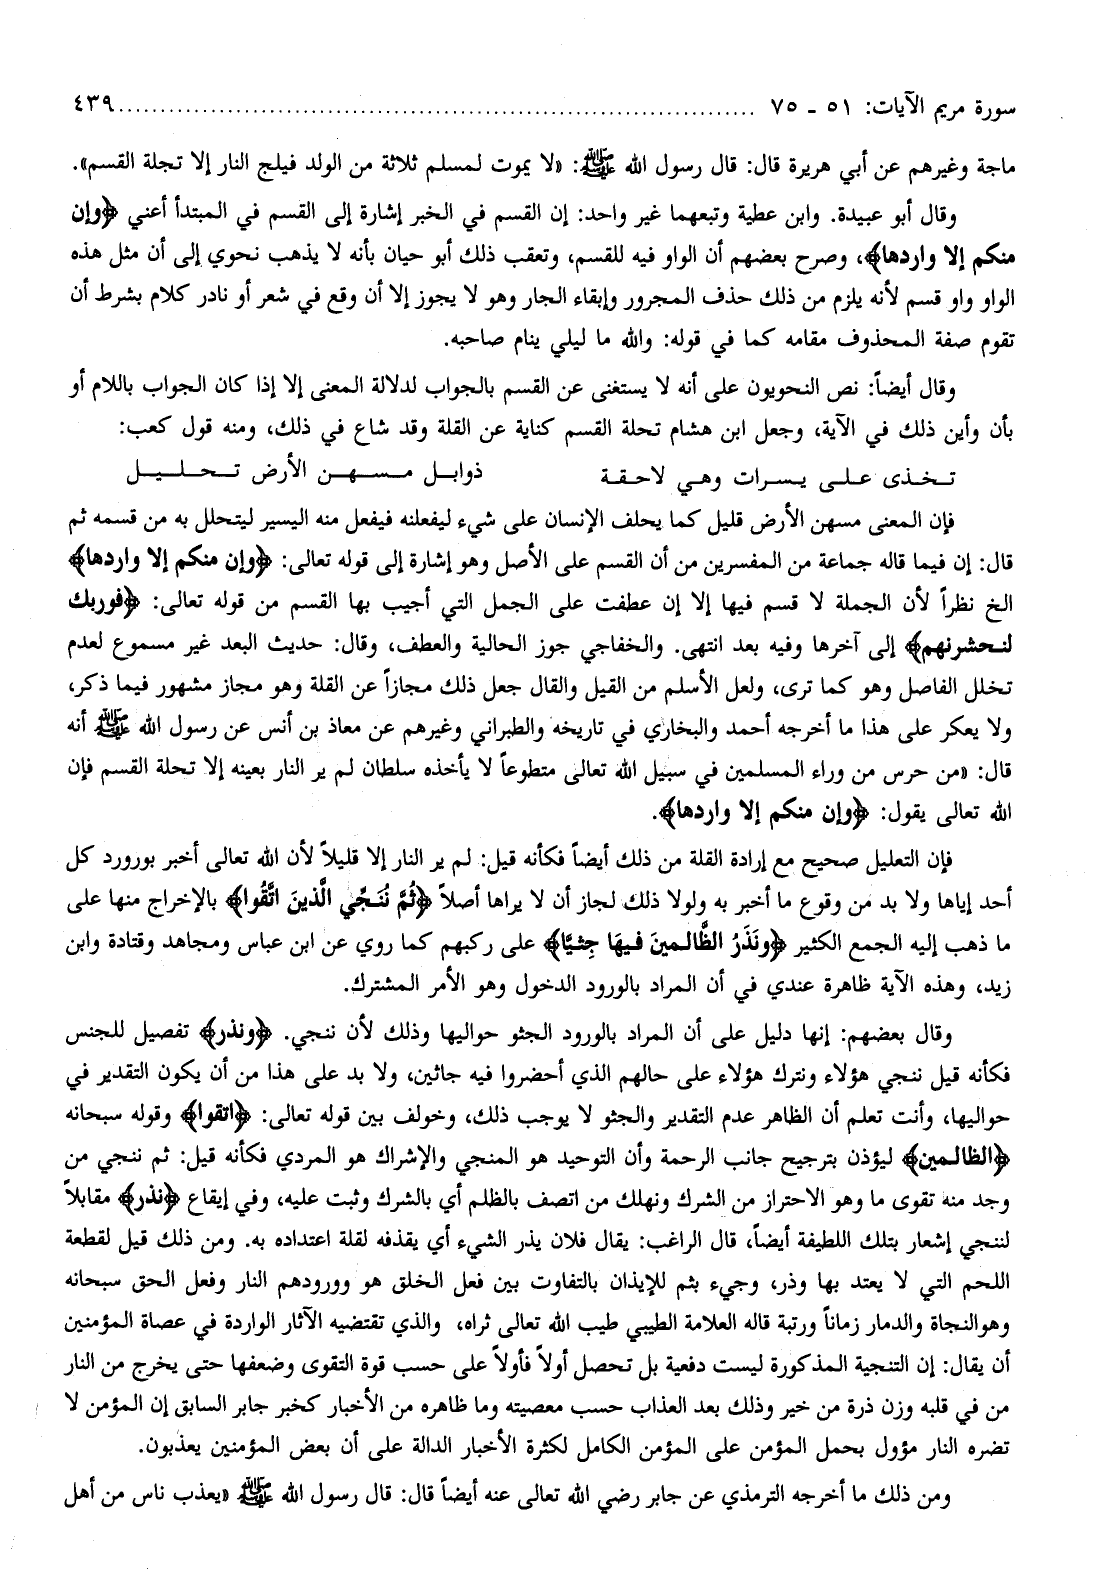 سورة مريم الآيات: ٥١ - ٧٥ ........................ ٤٣٩
ماجة وغيرهم عن أبي هريرة قال: قال رسول الله ﷺ: «لا يموت لمسلم ثلاثة من الولد فيلج النار إلا تحلة القسم».
وقال أبو عبيدة. وابن عطية وتبعهما غير واحد: إن القسم في الخبر إشارة إلى القسم في المبتدأ أعني ﴿وإن
منكم إلا واردها﴾، وصرح بعضهم أن الواو فيه للقسم، وتعقب ذلك أبو حيان بأنه لا يذهب نحوي إلى أن مثل هذه
الواو واو قسم لأنه يلزم من ذلك حذف المجرور وإبقاء الجار وهو لا يجوز إلا أن وقع في شعر أو نادر كلام بشرط أن
تقوم صفة المحذوف مقامه كما في قوله: والله ما ليلي ينام صاحبه.
وقال أيضاً: نص النحويون على أنه لا يستغنى عن القسم بالجواب لدلالة المعنى إلا إذا كان الجواب باللام أو
بأن وأين ذلك في الآية، وجعل ابن هشام تحلة القسم كناية عن القلة وقد شاع في ذلك، ومنه قول كعب:
تخذى على يسرات وهي لاحقة ذوابل مسهن الأرض تحليل
فإن المعنى مسهن الأرض قليل كما يحلف الإنسان على شيء ليفعلنه فيفعل منه اليسير ليتحلل به من قسمه ثم
قال: إن فيما قاله جماعة من المفسرين من أن القسم على الأصل وهو إشارة إلى قوله تعالى: ﴿وإن منكم إلا واردها﴾
الخ نظراً لأن الجملة لا قسم فيها إلا إن عطفت على الجمل التي أجيب بها القسم من قوله تعالى: ﴿فوربك
لنحشرنهم﴾ إلى آخرها وفيه بعد انتهى. والخفاجي جوز الحالية والعطف، وقال: حديث البعد غير مسموع لعدم
تخلل الفاصل وهو كما ترى، ولعل الأسلم من القيل والقال جعل ذلك مجازاً عن القلة وهو مجاز مشهور فيما ذكر،
ولا يعكر على هذا ما أخرجه أحمد والبخاري في تاريخه والطبراني وغيرهم عن معاذ بن أنس عن رسول الله ﷺ أنه
قال: «من حرس من وراء المسلمين في سبيل الله تعالى متطوعاً لا يأخذه سلطان لم ير النار بعينه إلا تحلة القسم فإن
الله تعالى يقول: ﴿وإن منكم إلا واردها﴾.
فإن التعليل صحيح مع إرادة القلة من ذلك أيضاً فكأنه قيل: لم ير النار إلا قليلاً لأن الله تعالى أخبر بورورد كل
أحد إياها ولا بد من وقوع ما أخبر به ولولا ذلك لجاز أن لا يراها أصلاً ﴿ثُمَّ نُنَجِّي الَّذينَ اتَّقُوا﴾ بالإخراج منها على
ما ذهب إليه الجمع الكثير ﴿ونَذَرُ الظَّالمينَ فيهَا جِثيًّا﴾ على ركبهم كما روي عن ابن عباس ومجاهد وقتادة وابن
زيد، وهذه الآية ظاهرة عندي في أن المراد بالورود الدخول وهو الأمر المشترك.
وقال بعضهم: إنها دليل على أن المراد بالورود الجثو حواليها وذلك لأن ننجي. ﴿ونذر﴾ تفصيل للجنس
فكأنه قيل ننجي هؤلاء ونترك هؤلاء على حالهم الذي أحضروا فيه جاثين، ولا بد على هذا من أن يكون التقدير في
حواليها، وأنت تعلم أن الظاهر عدم التقدير والجثو لا يوجب ذلك، وخولف بين قوله تعالى: ﴿اتقوا﴾ وقوله سبحانه
﴿الظالمين﴾ ليؤذن بترجيح جانب الرحمة وأن التوحيد هو المنجي والإشراك هو المردي فكأنه قيل: ثم ننجي من
وجد منه تقوى ما وهو الاحتراز من الشرك ونهلك من اتصف بالظلم أي بالشرك وثبت عليه، وفي إيقاع ﴿نذر﴾ مقابلاً
لننجي إشعار بتلك اللطيفة أيضاً، قال الراغب: يقال فلان يذر الشيء أي يقذفه لقلة اعتداده به. ومن ذلك قيل لقطعة
اللحم التي لا يعتد بها وذر، وجيء بثم للإيذان بالتفاوت بين فعل الخلق هو وورودهم النار وفعل الحق سبحانه
وهوالنجاة والدمار زماناً ورتبة قاله العلامة الطيبي طيب الله تعالى ثراه، والذي تقتضيه الآثار الواردة في عصاة المؤمنين
أن يقال: إن التنجية المذكورة ليست دفعية بل تحصل أولاً فأولاً على حسب قوة التقوى وضعفها حتى يخرج من النار
من في قلبه وزن ذرة من خير وذلك بعد العذاب حسب معصيته وما ظاهره من الأخبار كخبر جابر السابق إن المؤمن لا
تضره النار مؤول بحمل المؤمن على المؤمن الكامل لكثرة الأخبار الدالة على أن بعض المؤمنين يعذبون.
ومن ذلك ما أخرجه الترمذي عن جابر رضي الله تعالى عنه أيضاً قال: قال رسول الله ﷺ «يعذب ناس من أهل